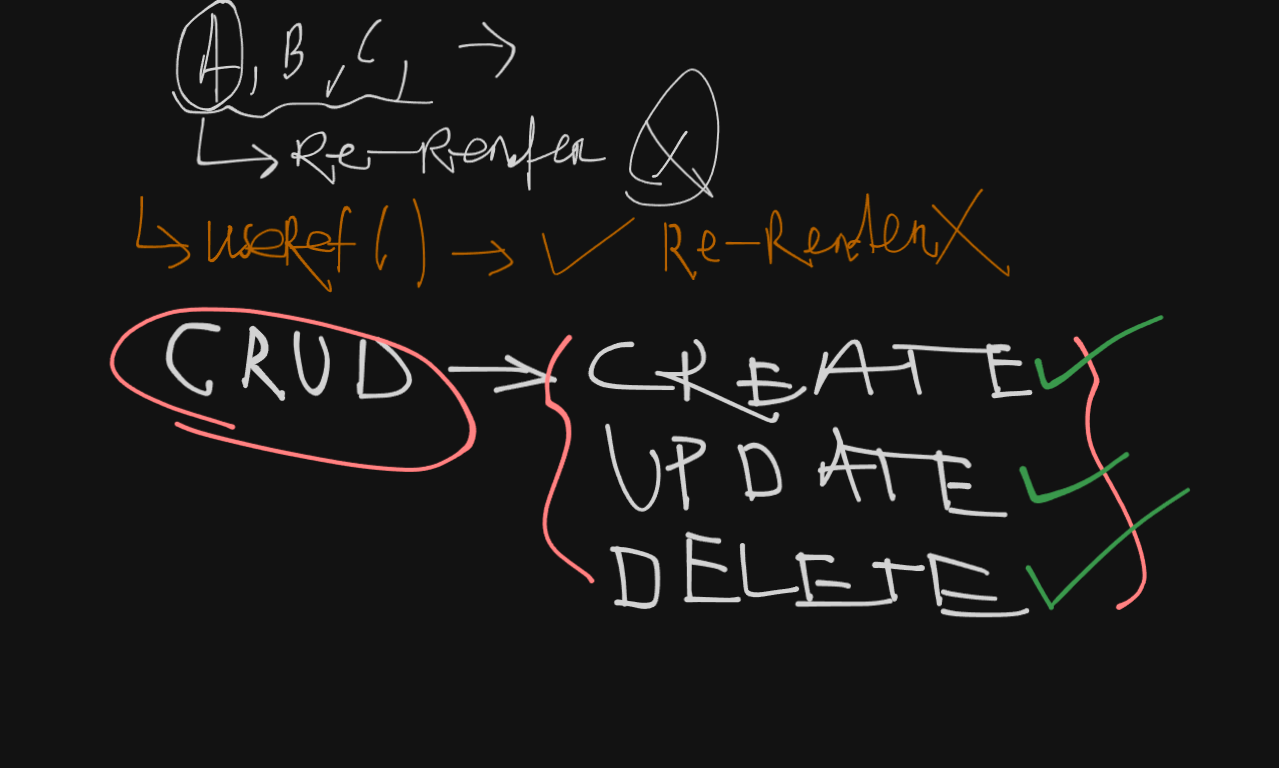 A, B, C, →
↳ Re-Render X
↳ useRef() → ✓ Re-Render X
CRUD → { CREATE ✓ }
UPDATE ✓
DELETE ✓